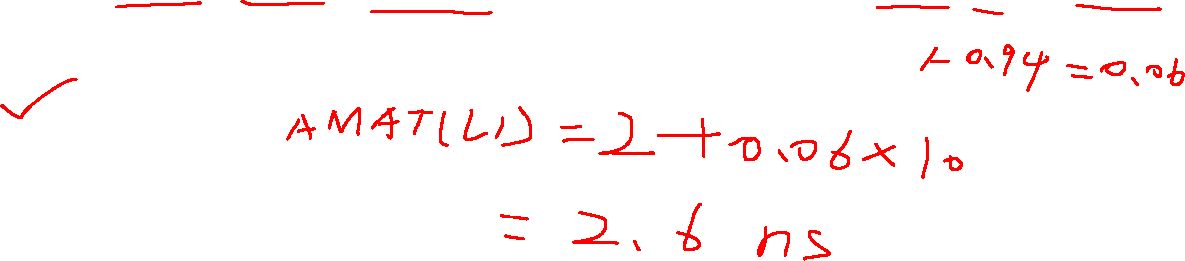 1-0.94=0.06
AMAT(L1) = 2+0.06×10
= 2.6 ns